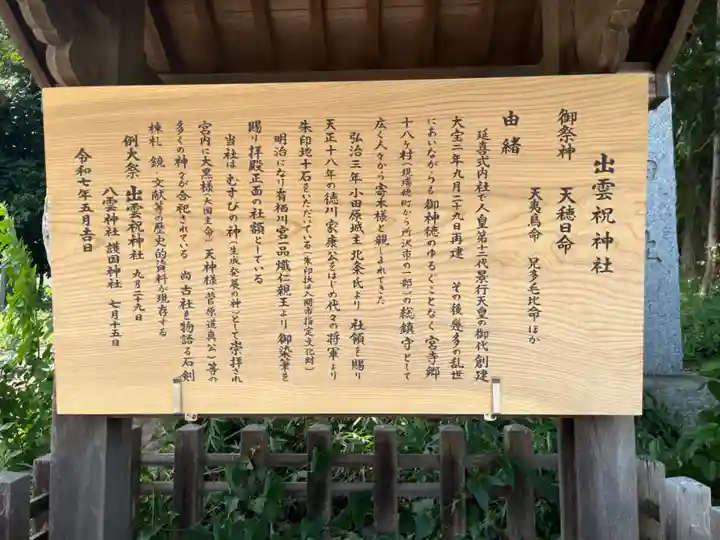 出雲祝神社
御祭神 天穂日命
天夷鳥命 兄多毛比命 ほか
由緒
延喜式内社で人皇第十二代景行天皇の御代 創建
大宝二年九月二十九日再建 その後 幾多の乱世
にあいながらも御神徳のゆるぐことなく 宮寺郷
十八ヶ村(現瑞穂町から所沢市の一部)の総鎮守として
広く人々から寄木様と親しまれてきた
弘治三年小田原城主北条氏より 社領を賜り
天正十八年の徳川家康公をはじめ代々の将軍より
朱印地十石をいただいている(朱印状は入間市指定文化財)
明治になり有栖川宮一品熾仁親王より 御染筆を
賜り拝殿正面の社額としている
当社は むすびの神(生成発展の神)として崇拝され
宮内に大黒様(大国主命) 天神様(菅原道真公)等の
多くの神々が合祀されている 尚古社を物語る石剣
棟札 鏡・文献等の歴史的資料が現存する
例大祭 出雲祝神社 九月二十九日
八雲神社 護国神社 七月十五日
令和七年五月吉日